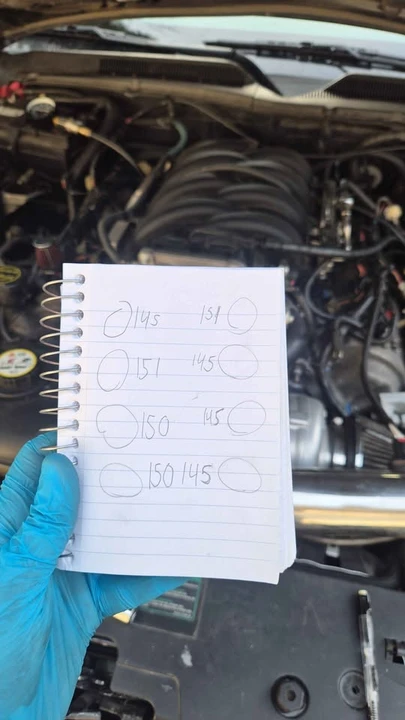 145 151
151 145
150 145
150 145